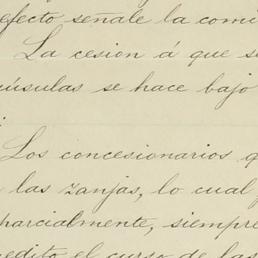 efecto señale la comi
La cesion á que s
cúsulas se hace bajo
Los concesionarios q
las zanjas, lo cual
parcialmente, siempre
edito el curso de las